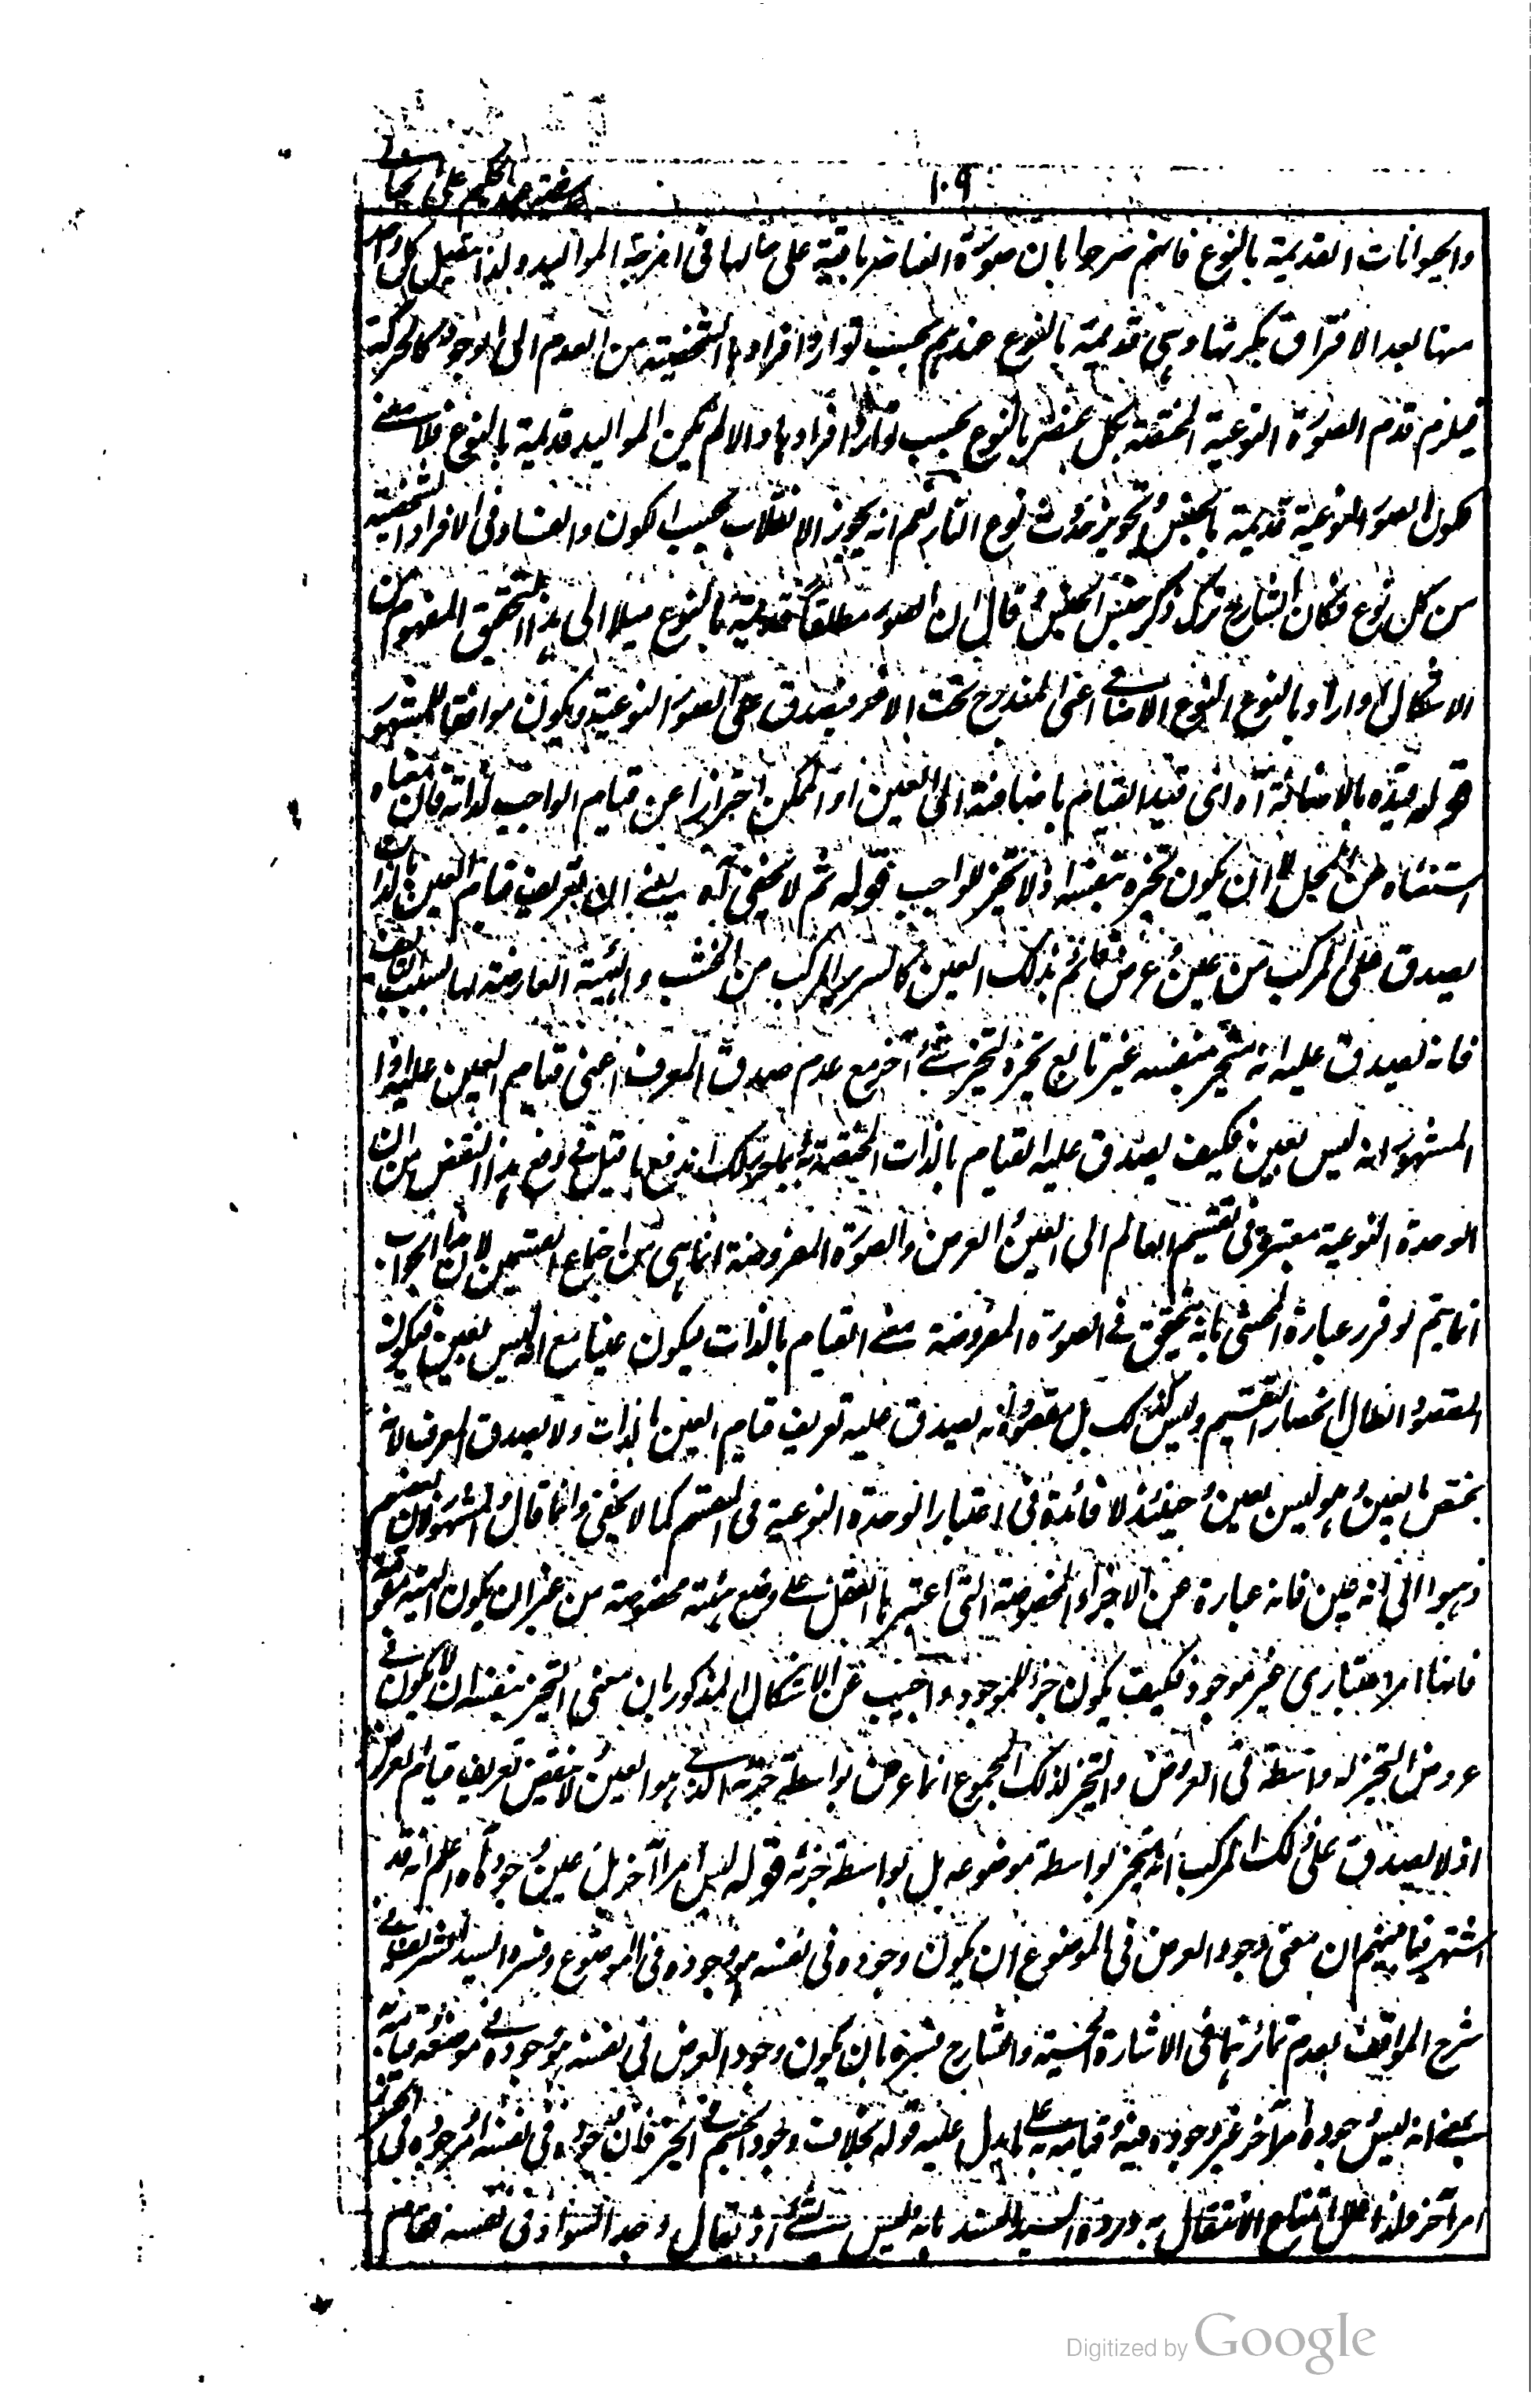 ١٠٩
حاشية عبد الحكيم على الخيالى
والحيوانات القديمة بالنوع فانهم صرحوا بان صورة العناصر باقية على حالها فى امزجة المواليد ولذا تنفصل كل واحد
منها بعد الافتراق بكيفياتها وهى قديمة بالنوع عندهم بحسب توارد افرادها الشخصية من العدم الى الوجود كالحركة
فيلزم قدم الصورة النوعية المختصة بكل عنصر بالنوع بحسب توارد افرادها والا لم يكن المواليد قديمة بالنوع فلا معنى
لكون الصور النوعية قديمة بالجنس وتجويز حدوث نوع النار نعم انه يجوز الانقلاب بحسب الكون والفساد فى الافراد الشخصية
من كل نوع فكان الشارح ترك ذكر الجنس وقال ان الصور مطلقا قديمة بالنوع ميلا الى هذا التحقيق المفهوم من
الاشكال او اراد بالنوع النوع الاضافى اعنى المندرج تحت الاخر فيصدق على الصور النوعية ويكون موافقا للمشهور
قوله قيده بالاضافة آه اى قيد القيام باضافته الى العين او الممكن احترازا عن قيام الواجب لذاته فان معناه
استغناؤه عن المحل لا ان يكون تحيزه بنفسه اذ لا تحيز للواجب قوله ثم لا يخفى آه يعنى ان تعريف قيام العين بالذات
يصدق على المركب من عين وعرض قائم بذلك العين كالسرير المركب من الخشب والهيئة العارضة لها بسبب التأليف
فانه يصدق عليه انه متحيز بنفسه غير تابع تحيزه لتحيز شئ آخر مع عدم صدق المعرف اعنى قيام العين عليه اذ
المشهور انه ليس بعين فكيف يصدق عليه القيام بالذات المختصة به وبما حررنا لك اندفع ما قيل فى دفع هذا النقض من ان
الوحدة النوعية معتبرة فى تقسيم العالم الى العين والعرض والصورة المفروضة انما هى من اجتماع القسمين لان هذا الجواب
انما يتم لو قرر عبارة المحشى بانه يتحقق فى الصورة المفروضة معنى القيام بالذات فيكون عينا مع انه ليس بعين فيكون
المقصود ابطال انحصار التقسيم وليس كذلك بل مقصوده انه يصدق عليه تعريف قيام العين بالذات ولا يصدق المعرف لانه
يختص بالعين وهو ليس بعين وحينئذ لا فائدة فى اعتبار الوحدة النوعية فى المقسم كما لا يخفى وانما قال المشهور لان بعضهم
ذهبوا الى انه عين فانه عبارة عن الاجزاء المخصوصة التى اعتبرها العقل على وضع هيئة مخصوصة من غير ان يكون الهيئة مقومة
فانها امر اعتبارى غير موجود فكيف يكون جزأ للموجود واجيب عن الاشكال المذكور بان معنى التحيز بنفسه ان لا يكون فى
عروض التحيز له واسطة فى العروض والتحيز لذلك المجموع انما عرض بواسطة جزئه الذى هو العين ولا ينتقض تعريف قيام العرض
اذ لا يصدق على ذلك المركب انه متحيز بواسطة موضوعه بل بواسطة جزئه قوله ليس امرا آخر بل عين وجوده آه اعلم انه قد
اشتهر فيما بينهم ان معنى وجود العرض فى الموضوع ان يكون وجوده فى نفسه هو وجوده فى الموضوع وفسره السيد الشريف فى
شرح المواقف بعدم تمايزهما فى الاشارة الحسية والشارح فسره بان يكون وجود العرض فى نفسه هو وجوده فى موضوعه وقيامه به
بمعنى انه ليس وجوده امرا آخر غير وجوده فيه وقيامه به على ما يدل عليه قوله بخلاف وجود الجسم فى الحيز فان وجوده فى نفسه امر ووجوده فى الحيز
امر آخر ولذا علل امتناع الانتقال به ورده السيد السند بانه ليس بشئ اذ يقال وجد السواد فى نفسه فقام